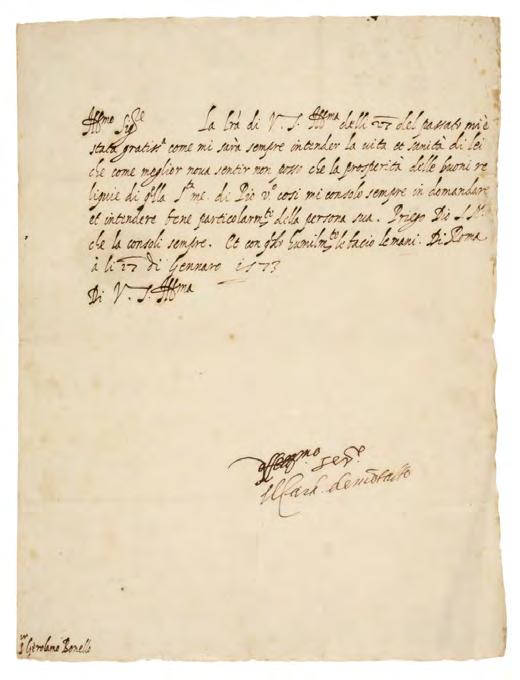 Ill.mo Sig.re La l'ra di V. S. Ill.ma delli 27 del passato mi è
stata gratiss.a come mi sarà sempre intender la vita et sanità di lei
che come meglior nova sentir non posso che la prosperità delle buoni re
liquie di q'lla S.ta me. di Pio V.o cosi mi consolo sempre in demandare
et intendere particolarm.te della persona sua. Priego Dio S. N.
che la consoli sempre. Et con q'sto humilm.te le bacio le mani. Di Roma
à li 27 di Gennaro 1573
Di V. S. Ill.ma
ser.re
Il Car.l de
S.or Gerolamo Bonello